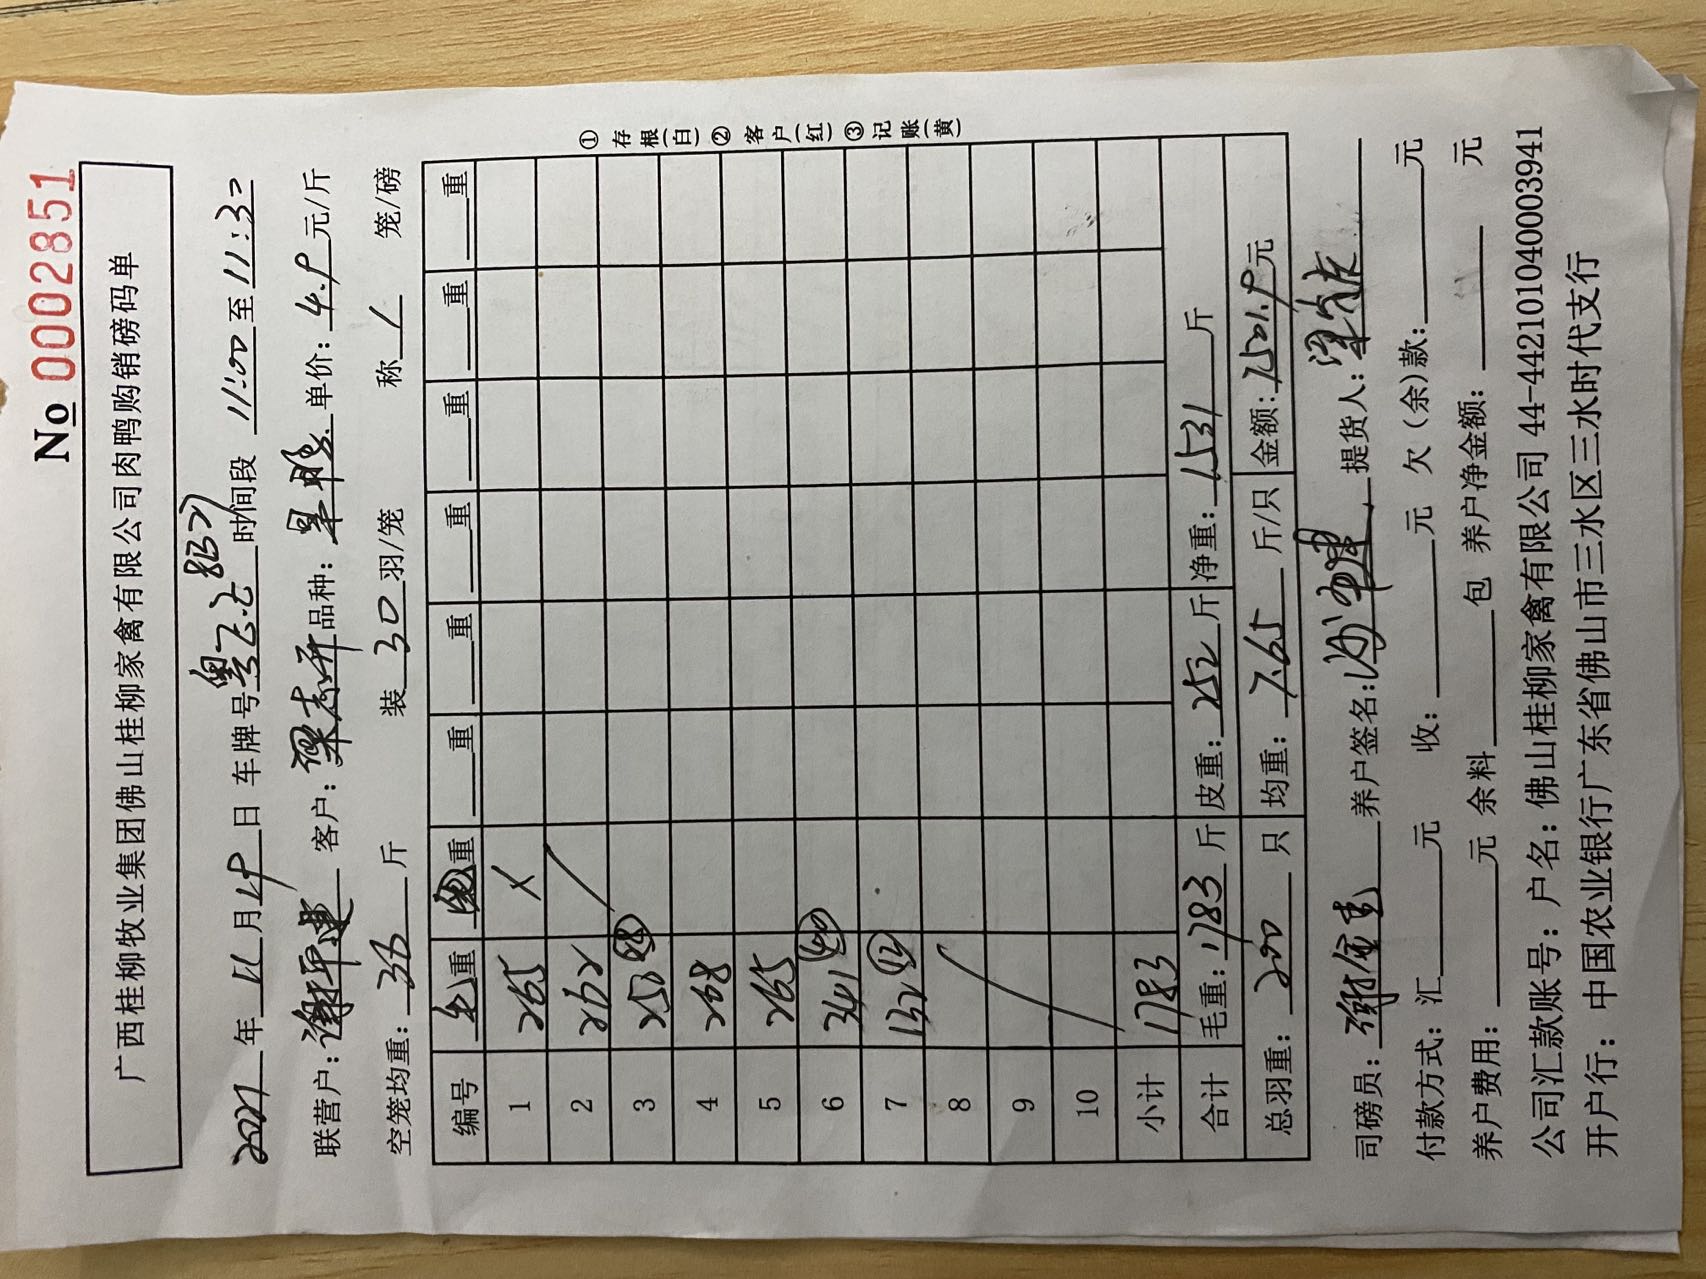 No 0002851
广西桂柳牧业集团佛山桂柳家禽有限公司肉鸭购销磅码单
2021 年 12 月 4 日 车牌号 粤 时间段 11:00 至 11:30
联营户: 谢平建 客户: 梁志开 品种: 单价: 4.9 元/斤
空笼均重: 36 斤 装 30 羽/笼 称 / 笼/磅
编号 毛重 重 重 重 重 重 重 重
1 255 X
2 262
3 253 28
4 258
5 265
6 341 40
7 132 12
8
9
10
小计 1783
合计 毛重: 1783 斤 皮重: 252 斤 净重: 1531 斤
总羽重: 200 只 均重: 7.65 斤/只 金额: 7501.9 元
①存根(白)②客户(红)③记账(黄)
司磅员: 谢金 养户签名: 提货人:
付款方式: 汇 元 收: 元 欠(余)款: 元
养户费用: 元 余料 包 养户净金额: 元
公司汇款账号: 户名: 佛山桂柳家禽有限公司 44-442101040003941
开户行: 中国农业银行广东省佛山市三水区三水时代支行